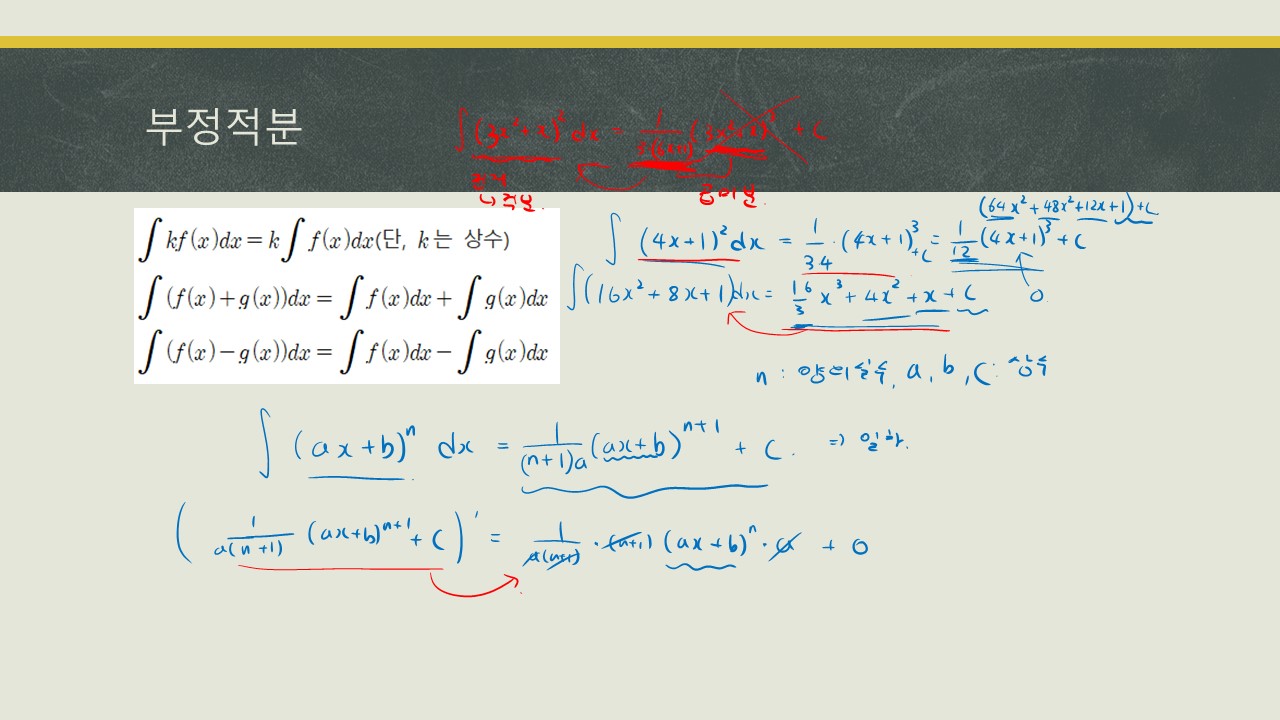 부정적분
∫(3x²+x)² dx = 1/3(6x+1) (3x²+x)³ + C
∫kf(x)dx = k∫f(x)dx(단, k는 상수)
∫(f(x)+g(x))dx = ∫f(x)dx + ∫g(x)dx
∫(f(x)−g(x))dx = ∫f(x)dx − ∫g(x)dx
(64x²+48x²+12x+1)+C
∫(4x+1)² dx = 1/3·4 · (4x+1)³ +C = 1/12 (4x+1)³ + C
∫(16x²+8x+1)dx = 16/3 x³ + 4x² + x + C
0
n : 양의실수, a, b, C: 상수
∫(ax+b)ⁿ dx = 1/(n+1)a (ax+b)ⁿ⁺¹ + C.
(1/a(n+1) (ax+b)ⁿ⁺¹ + C)' = 1/a(n+1) · (n+1) (ax+b)ⁿ · a + 0